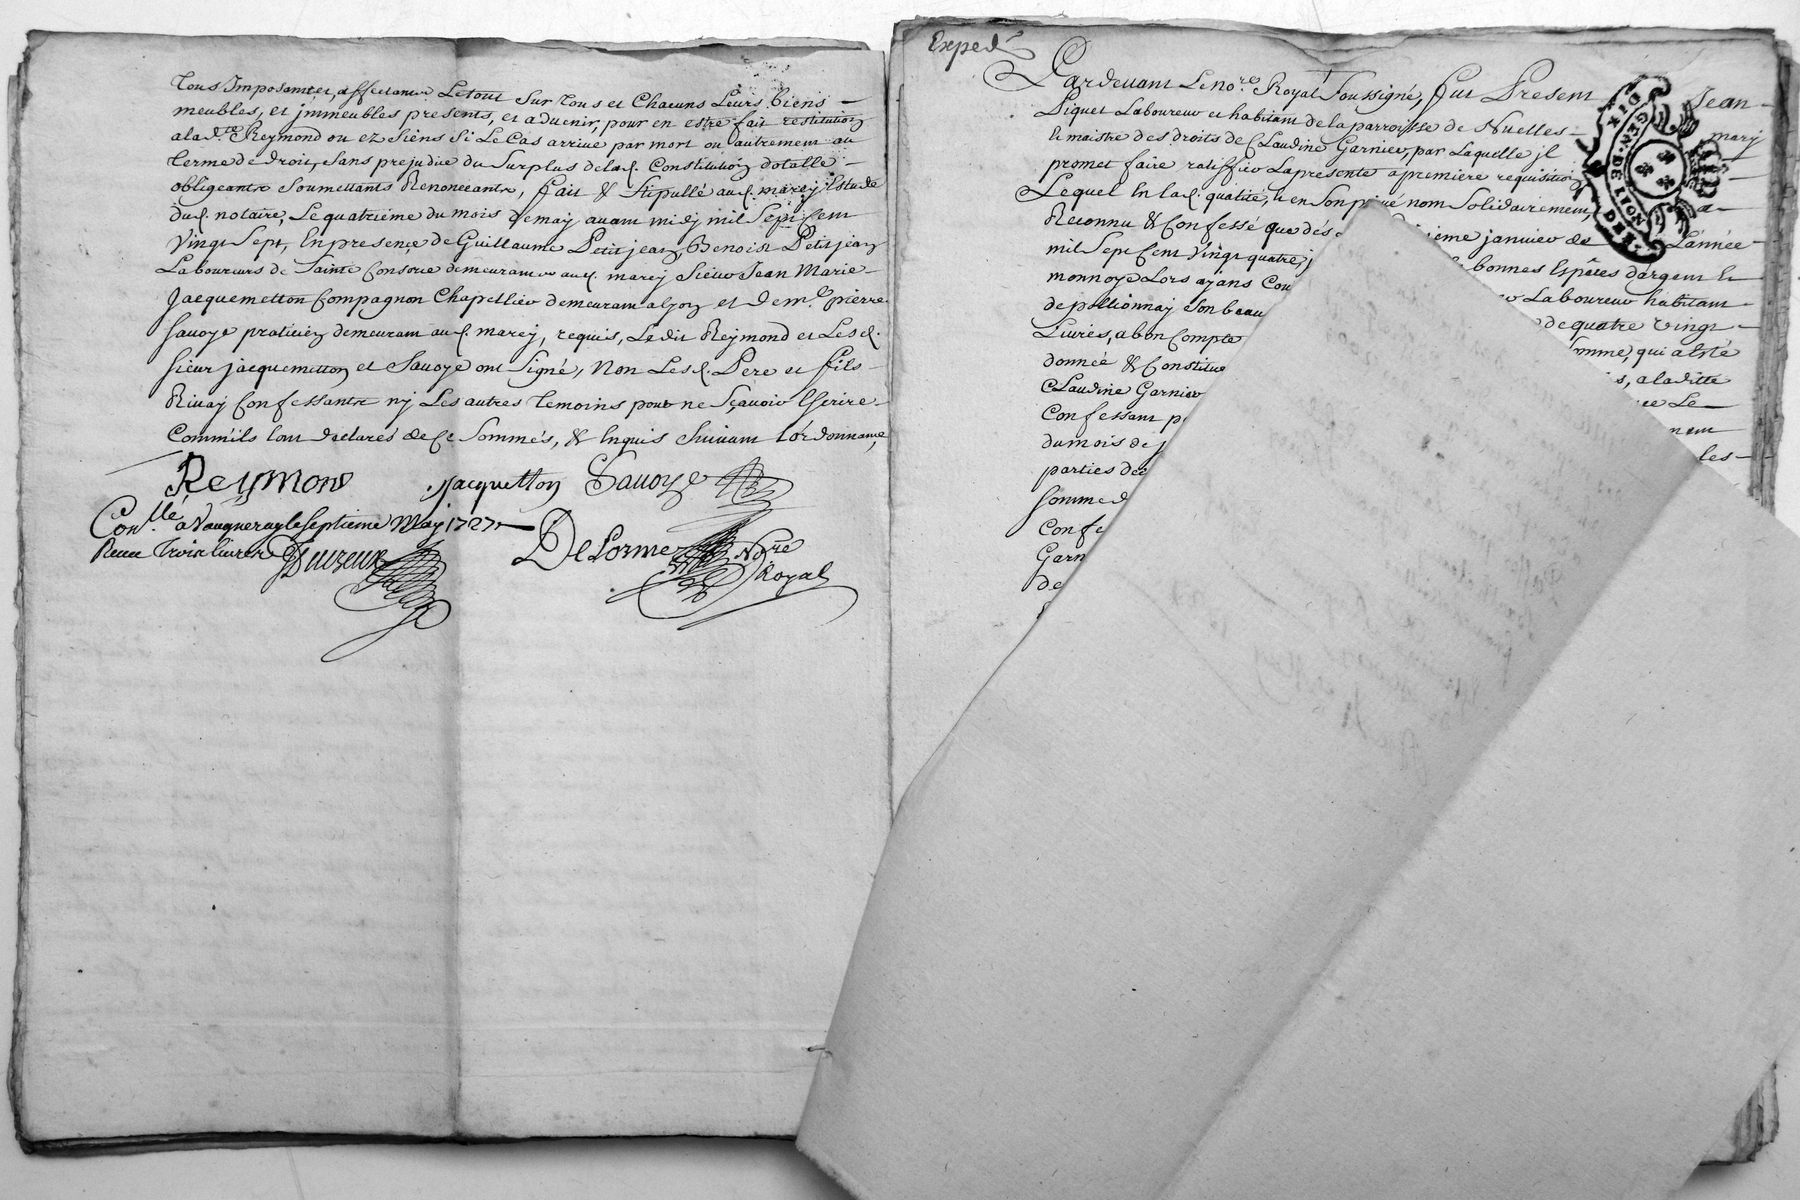 tous Imposantes, affectantes Letout Sur tous et Chacuns Leurs biens
meubles, et jmmeubles presents, et aduenir, pour en estre fait restitution
ala d.te Reymond ou ez Siens Si Le Cas arriue par mort ou autrement au
terme de droit, Sans prejudice du Surplus dela d. Constitution dotalle
obligeants Soumettants Renonceants, fait & Stipullé au d. marcy Estude
du d. notaire, Le quatriéme du mois de may auant midy mil Sept Cent
Vingt Sept, En presence de Guillaume Petitjean, Benoist Petitjean
Laboureurs de Sainte Consorce demeurants au d. marcy Sieur Jean Marie
Jacquemetton Compagnon Chapellier demeurant a Lyon et de m.e pierre
Sauoye praticien demeurant au d. marcy, requis, Ledit Reymond et Les d.
Sieur jacquemetton et Sauoye ont Signé, Non Les d. Pere et fils
Riuay Confessants nj Les autres temoins pour ne Sçauoir Escrire
Comm'ils l'ont déclarés de Ce Sommés, & Enquis Suiuant l'ordonnance,
Reymond jacquetton Sauoye
Con.lle a Vaugneray le Septieme May 1727
Receu Trois liures
DeLorme No.re
Royal
Exped.
Pardeuant Le no.re Royal Soussigné, fut Present Jean
Piquet Laboureur et habitant de la parroisse de Nuelles mary
et maistre des droits de Claudine Garnier, par Laquelle jl
promet faire ratiffier La presente a premiere requisition
Lequel En la d. qualité, et en Son priué nom Solidairement, a
Reconnu & Confessé que dés ieme januier de L'année
mil Sept Cent Vingt quatre, bonnes Espêces d'argent et
monnoye Lors ayans Cou Laboureur habitant
de pollionnay Son beau de quatre Vingt
Liures, a bon Compte omme, qui a Esté
donneé & Constitue s, a la ditte
Claudine Garnier Le
Confessant p
du mois de j les
parties de
Somme d
Confe
Garn
de
GEN. DE LION
DIX
DEN.